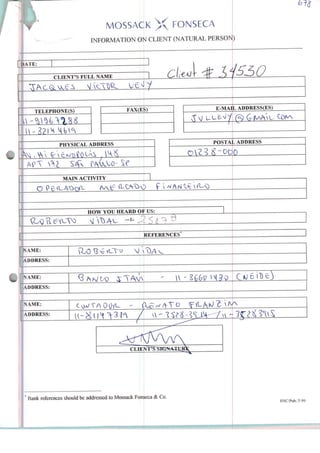 678
MOSSACK FONSECA
INFORMATION ON CLIENT (NATURAL PERSON)
DATE:
Client # 34530
CLIENT'S FULL NAME
JACQUES VICTOR LEVY
TELEPHONE(S) FAX(ES) E-MAIL ADDRESS(ES)
11-91967288 JVLLEVY@GMAIL.COM
11-3214 4619
PHYSICAL ADDRESS POSTAL ADDRESS
AV. HIGIENOPOLIS 148 01238-000
APT 192 SAO PAULO SP
MAIN ACTIVITY
OPERADOR MERCADO FINANSEIRO
HOW YOU HEARD OF US:
ROBERTO VIDAL
REFERENCES*
NAME: ROBERTO VIDAL
ADDRESS:
NAME: BANCO ITAU - 11-3660 1430 (NEIDE)
ADDRESS:
NAME: CONTADOR - RENATO FRANZIM
ADDRESS: 11-81147319 / 11-3528-3914 / 11-35283915
CLIENT'S SIGNATURE
* Bank references should be addressed to Mossack Fonseca & Co.